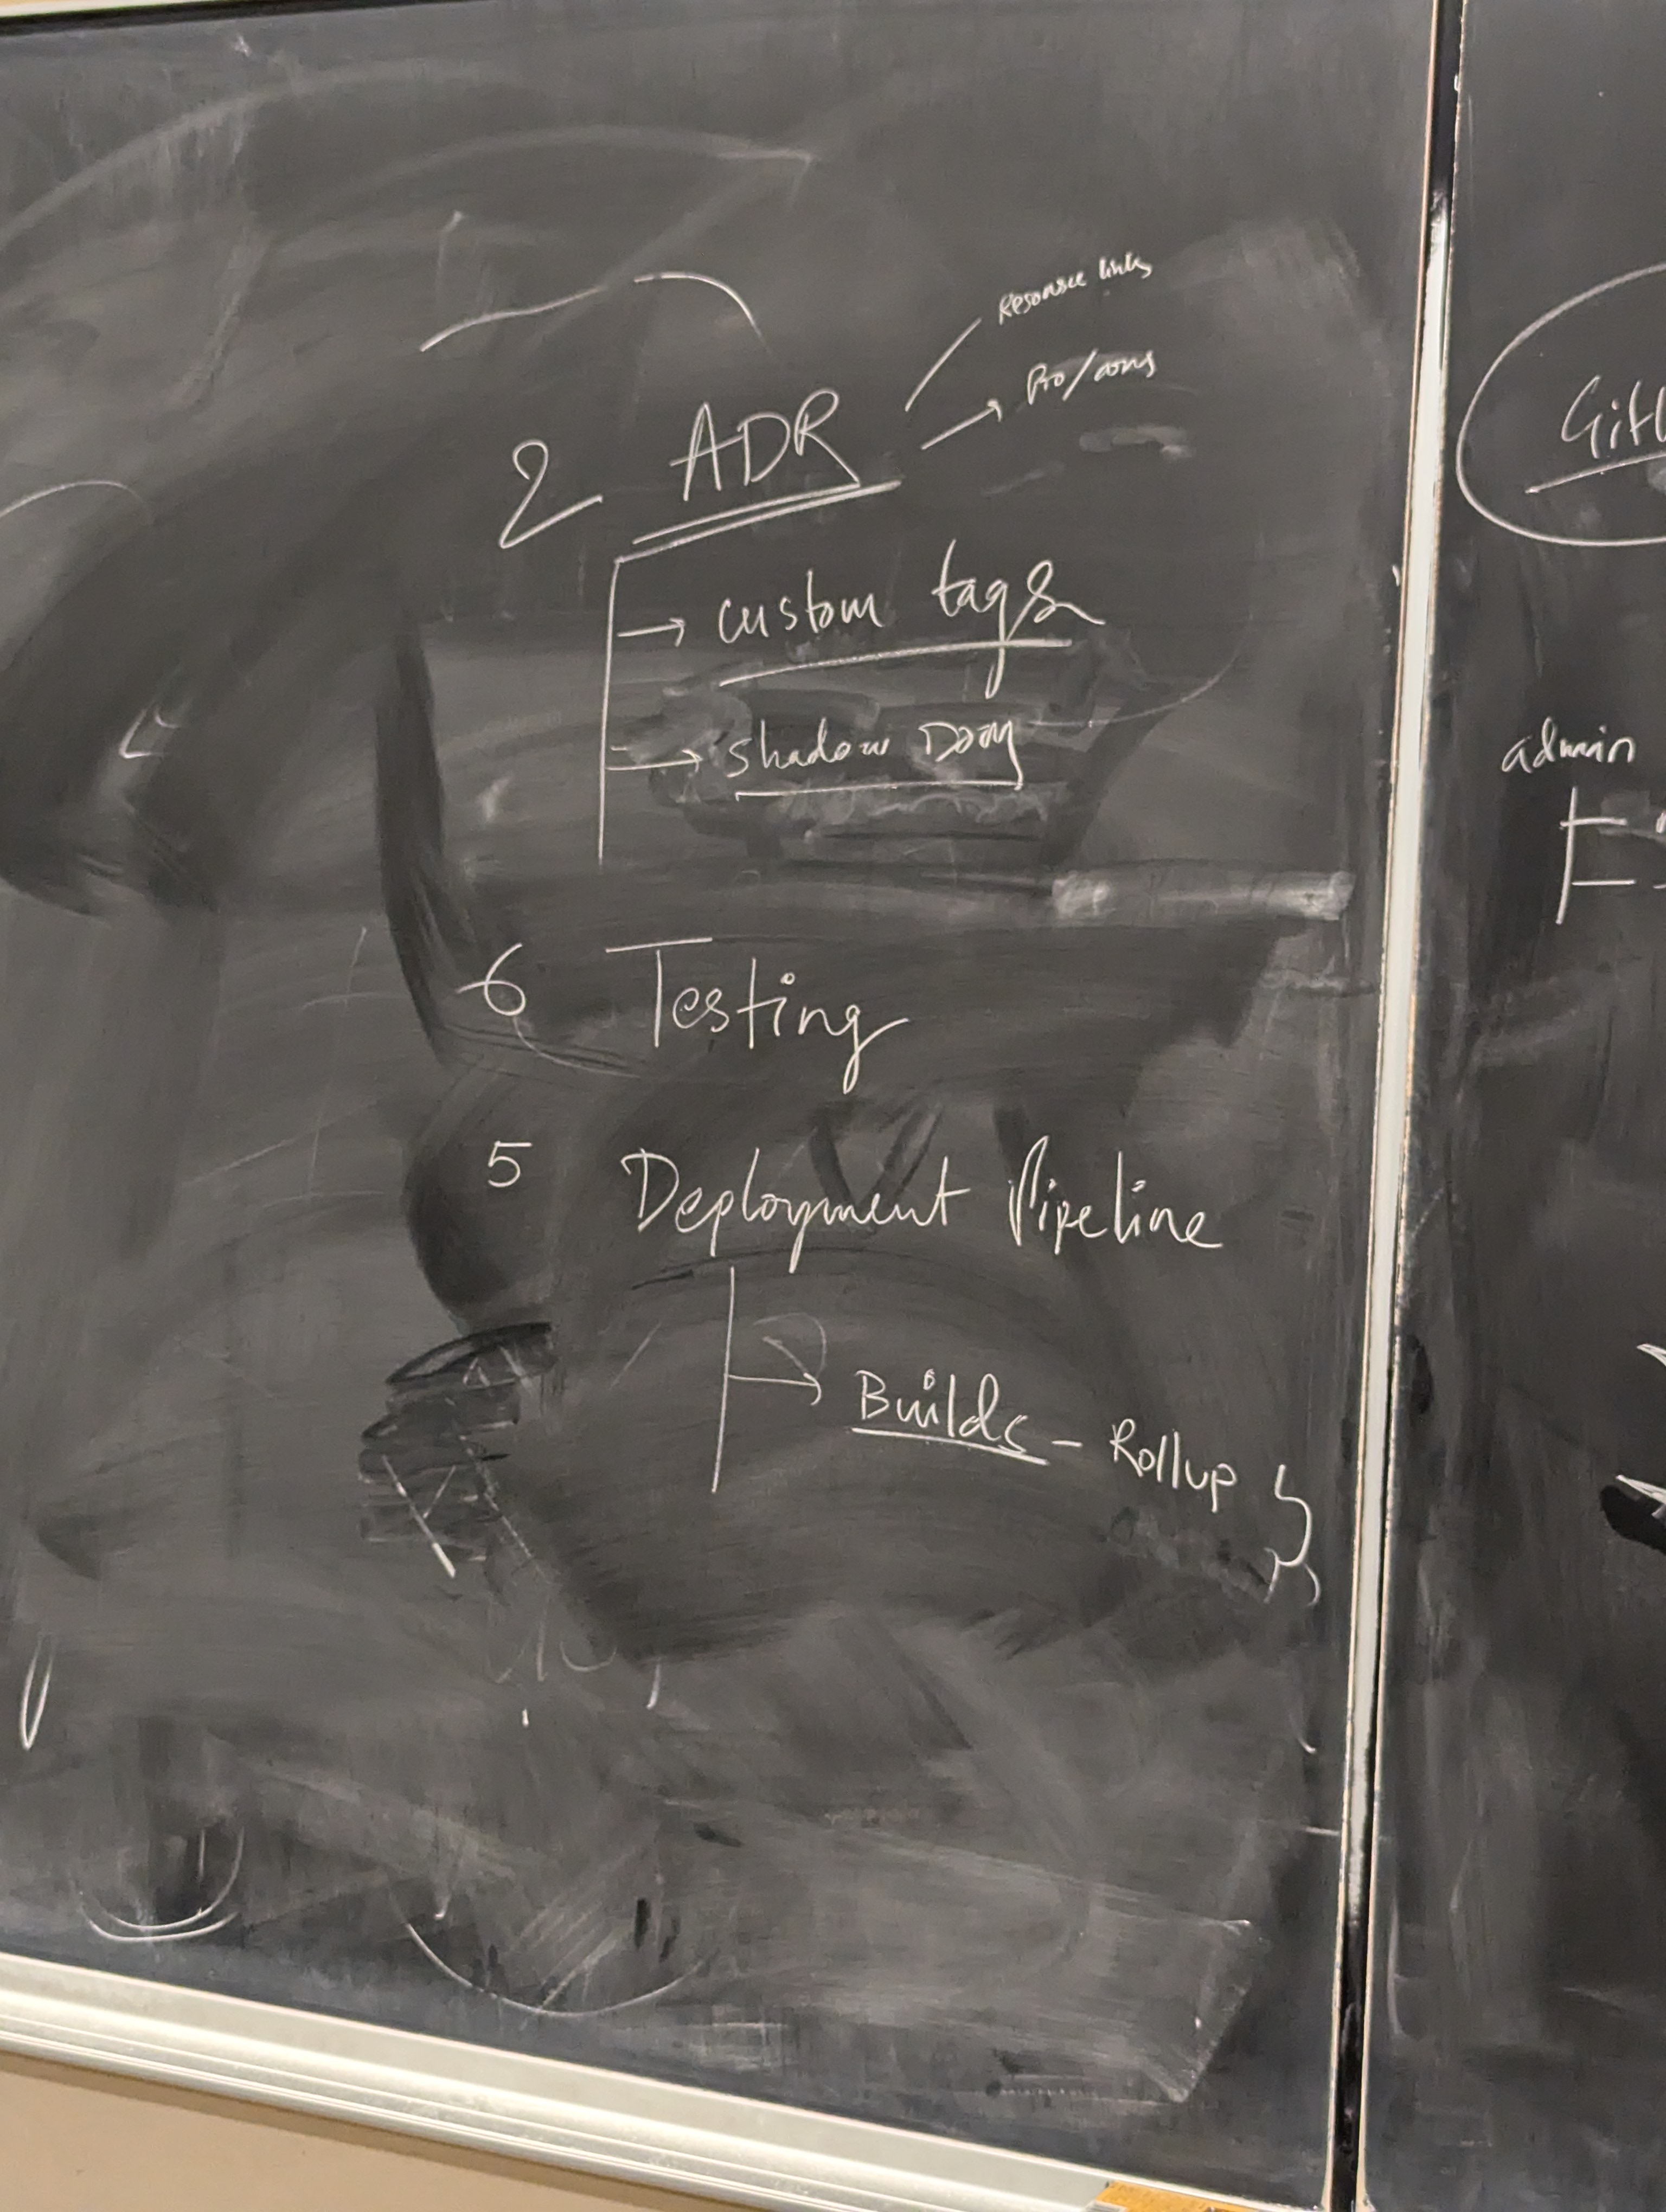 Resource links
Pro/cons
2 ADR
→ custom tags
→ shadow DOM
6 Testing
5 Deployment Pipeline
→ Builds - Rollup
admin